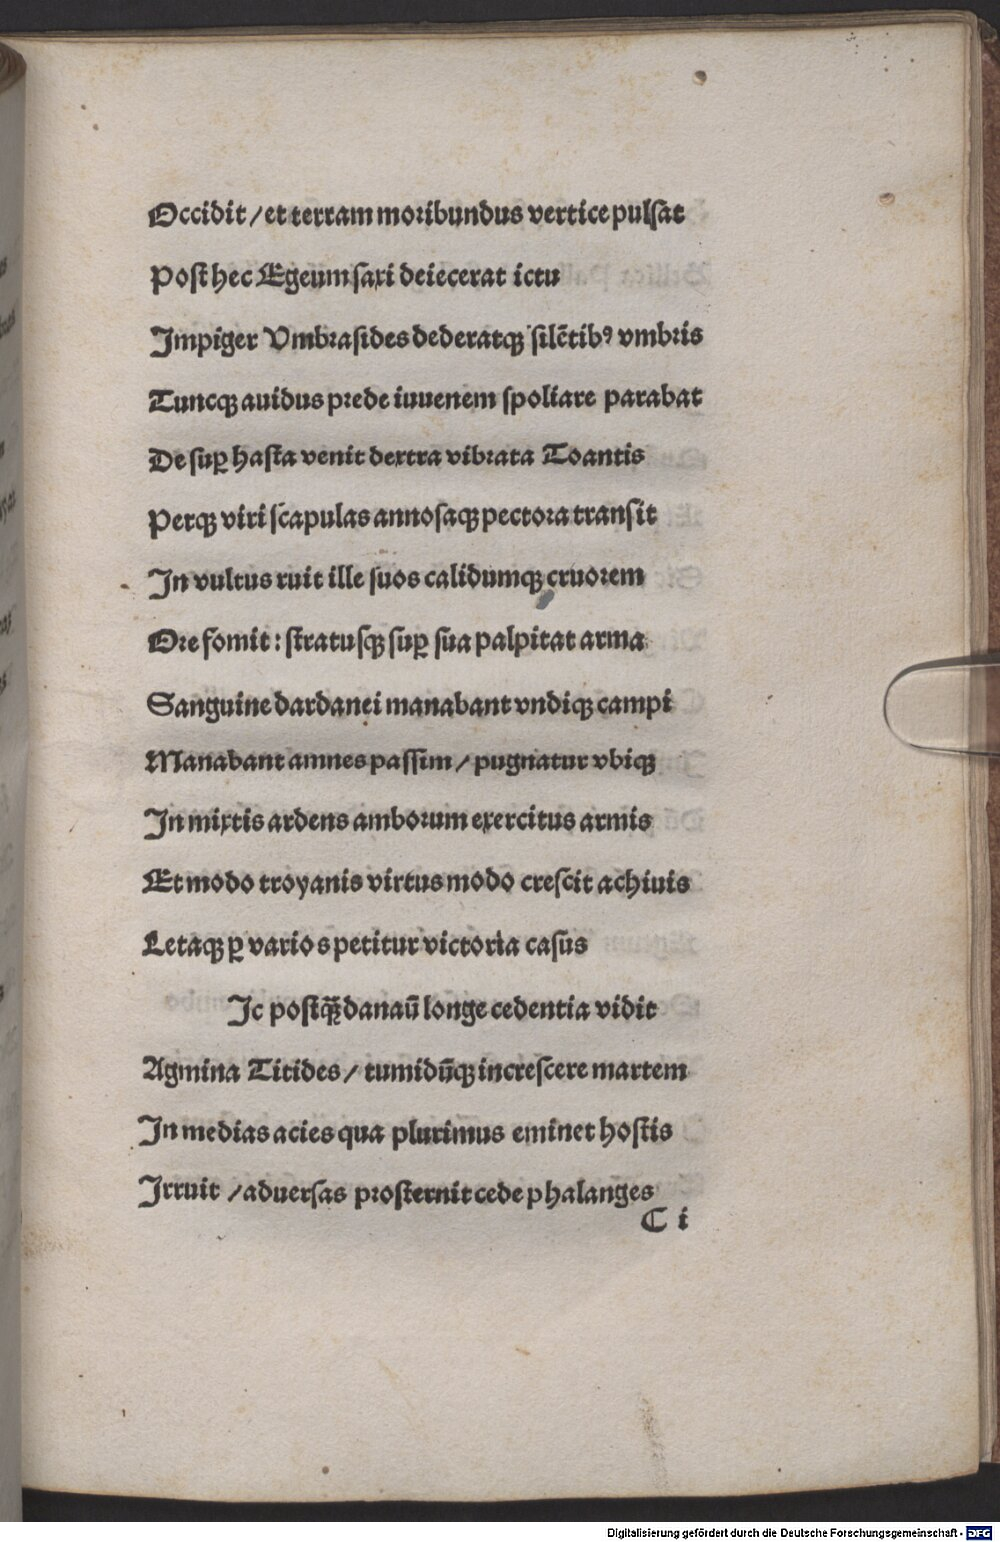 Occidit / et terram moribundus vertice pulsat
Post hec Egeum saxi deiecerat ictu
Impiger Vmbrasides dederatqꝫ silẽtibꝰ vmbris
Tuncqꝫ auidus prede iuuenem spoliare parabat
De suꝑ hasta venit dextra vibrata Toantis
Perqꝫ viri scapulas annosaqꝫ pectora transit
In vultus ruit ille suos calidumqꝫ cruorem
Ore fomit : stratusqꝫ suꝑ sua palpitat arma
Sanguine dardanei manabant vndiqꝫ campi
Manabant amnes passim / pugnatur vbiqꝫ
In mixtis ardens amborum exercitus armis
Et modo troyanis virtus modo crescit achiuis
Letaqꝫ ꝑ varios petitur victoria casus
Ic postqꝫ̃ danaũ longe cedentia vidit
Agmina Titides / tumidũqꝫ increscere martem
In medias acies qua plurimus eminet hostis
Irruit / aduersas prosternit cede phalanges
C i
Digitalisierung gefördert durch die Deutsche Forschungsgemeinschaft - DFG